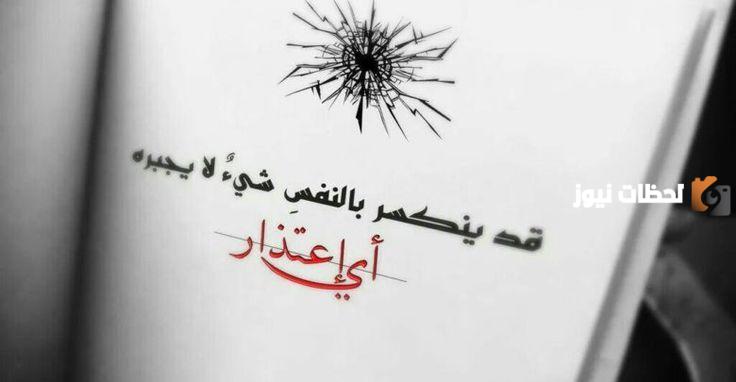 قد ينكسر بالنفسِ شيءٌ لا يجبره
أي إعتذار
لحظات نيوز